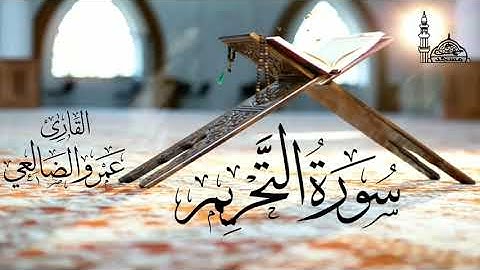 القارئ
عمرو الضالعي
سورة التحريم